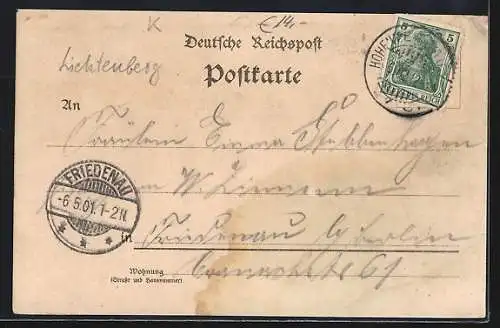 K
€ 14,-
Deutsche Reichspost
Postkarte
Lichtenberg
5
HOHEN
An
Fräulein Emma Stubbenhagen
W. Zimmern
FRIEDENAU
-6.5.01.1-2N.
in Friedenau b/ Berlin
Wohnung
(Straße und Hausnummer)
Cranachstr 61